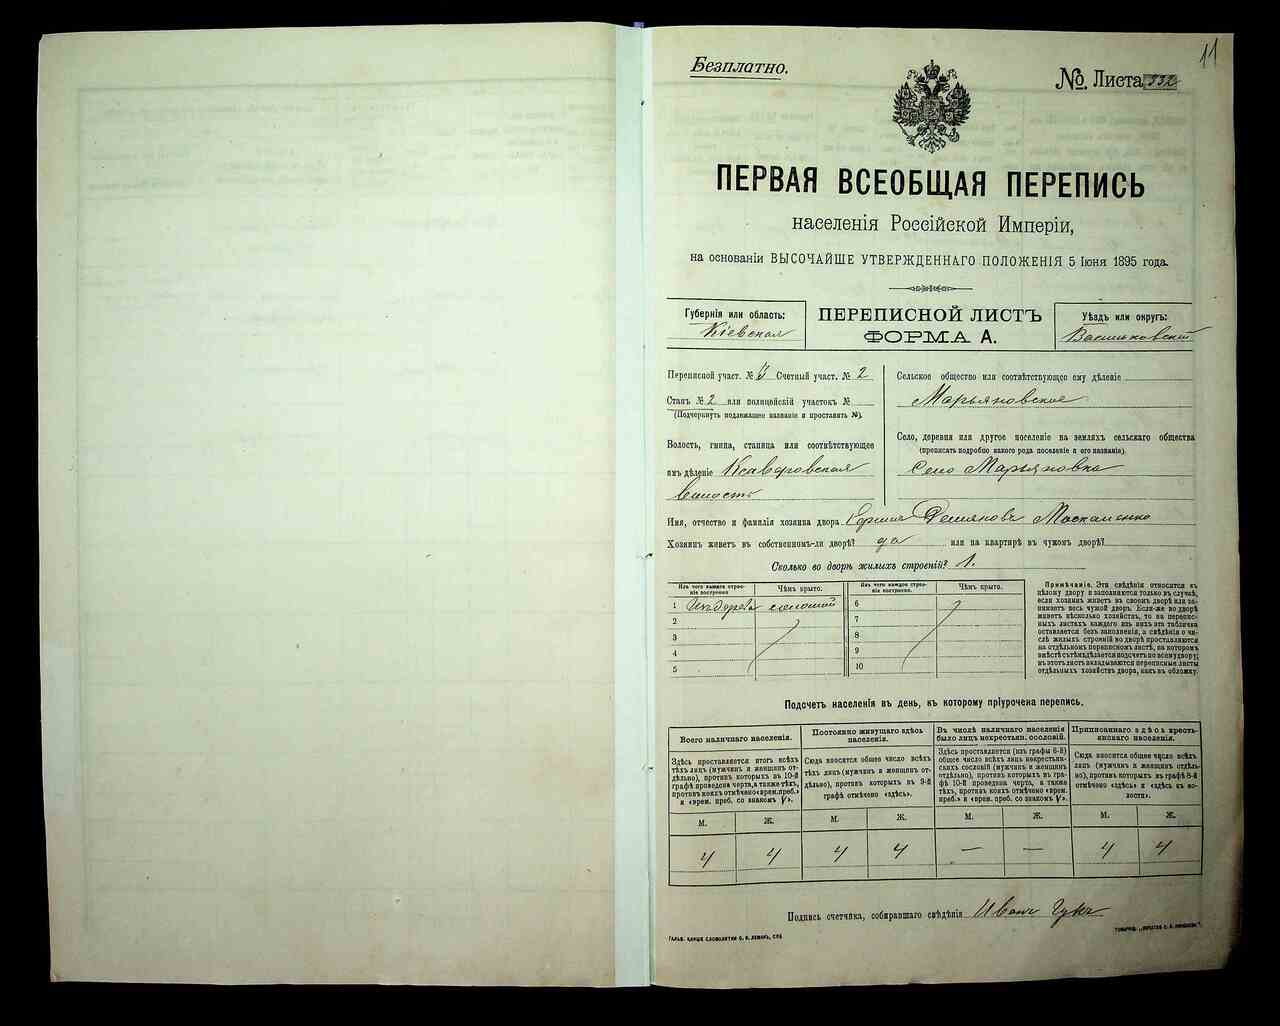 11
Безплатно.
№. Листа 332
ПЕРВАЯ ВСЕОБЩАЯ ПЕРЕПИСЬ
населенія Россійской Имперіи,
на основаніи ВЫСОЧАЙШЕ УТВЕРЖДЕННАГО ПОЛОЖЕНІЯ 5 Іюня 1895 года.
Губернія или область:
Кіевская
ПЕРЕПИСНОЙ ЛИСТЪ
ФОРМА А.
Уѣздъ или округъ:
Васильковскій
Переписной участ. № Счетный участ. № 2
Станъ № 2 или полицейскій участокъ №
(Подчеркнуть подлежащее названіе и проставить №).
Волость, гмина, станица или соотвѣтствующее
имъ дѣленіе Ксаверовская
волость
Сельское общество или соотвѣтствующее ему дѣленіе
Марьяновское
Село, деревня или другое поселеніе на земляхъ сельскаго общества
(прописать подробно какого рода поселеніе и его названіе).
Село Марьяновка
Имя, отчество и фамилія хозяина двора Демяновъ Москаленко
Хозяинъ живетъ въ собственномъ-ли дворѣ? да или на квартирѣ въ чужомъ дворѣ?
Сколько во дворѣ жилыхъ строеній? 1.
Изъ чего каждое строеніе построено
Чѣмъ крыто.
Изъ чего каждое строеніе построено
Чѣмъ крыто.
1 Изъ дерева соломой
2
3
4
5
6
7
8
9
10
Примѣчаніе. Эти свѣдѣнія относятся къ
цѣлому двору и заполняются только въ случаѣ,
если хозяинъ живетъ въ своемъ дворѣ или за-
нимаетъ весь чужой дворъ. Если-же во дворѣ
живетъ нѣсколько хозяйствъ, то на перепис-
ныхъ листахъ каждаго изъ нихъ эта табличка
оставляется безъ заполненія, а свѣдѣнія о чи-
слѣ жилыхъ строеній во дворѣ проставляются
на отдѣльномъ переписномъ листѣ, на которомъ
вмѣстѣ съ тѣмъ дѣлается подсчетъ по всему двору;
въ этотъ листъ вкладываются переписные листы
отдѣльныхъ хозяйствъ двора, какъ въ обложку.
Подсчетъ населенія въ день, къ которому пріурочена перепись.
Всего наличнаго населенія.
Здѣсь проставляется итогъ всѣхъ
тѣхъ лицъ (мужчинъ и женщинъ от-
дѣльно), противъ которыхъ въ 10-й
графѣ проведена черта, а также тѣхъ,
противъ коихъ отмѣчено «врем. преб.»
и «врем. преб. со знакомъ V».
Постоянно живущаго здѣсь
населенія.
Сюда вносится общее число всѣхъ
тѣхъ лицъ (мужчинъ и женщинъ от-
дѣльно), противъ которыхъ въ 9-й
графѣ отмѣчено «здѣсь».
Въ числѣ наличнаго населенія
было лицъ некрестьян. сословій.
Здѣсь проставляется (изъ графы 6-й)
общее число всѣхъ лицъ некрестьян-
скихъ сословій (мужчинъ и женщинъ
отдѣльно), противъ которыхъ въ гра-
фѣ 10-й проведена черта, а также
тѣхъ, противъ коихъ отмѣчено «врем.
преб.» и «врем. преб. со знакомъ V».
Приписаннаго здѣсь кресть-
янскаго населенія.
Сюда вносится общее число всѣхъ
лицъ (мужчинъ и женщинъ отдѣль-
но), противъ которыхъ въ графѣ 8-й
отмѣчено «здѣсь» и «здѣсь въ во-
лости».
М. Ж. М. Ж. М. Ж. М. Ж.
4 4 4 4 — — 4 4
Подпись счетчика, собиравшаго свѣдѣнія Иванъ Гукъ